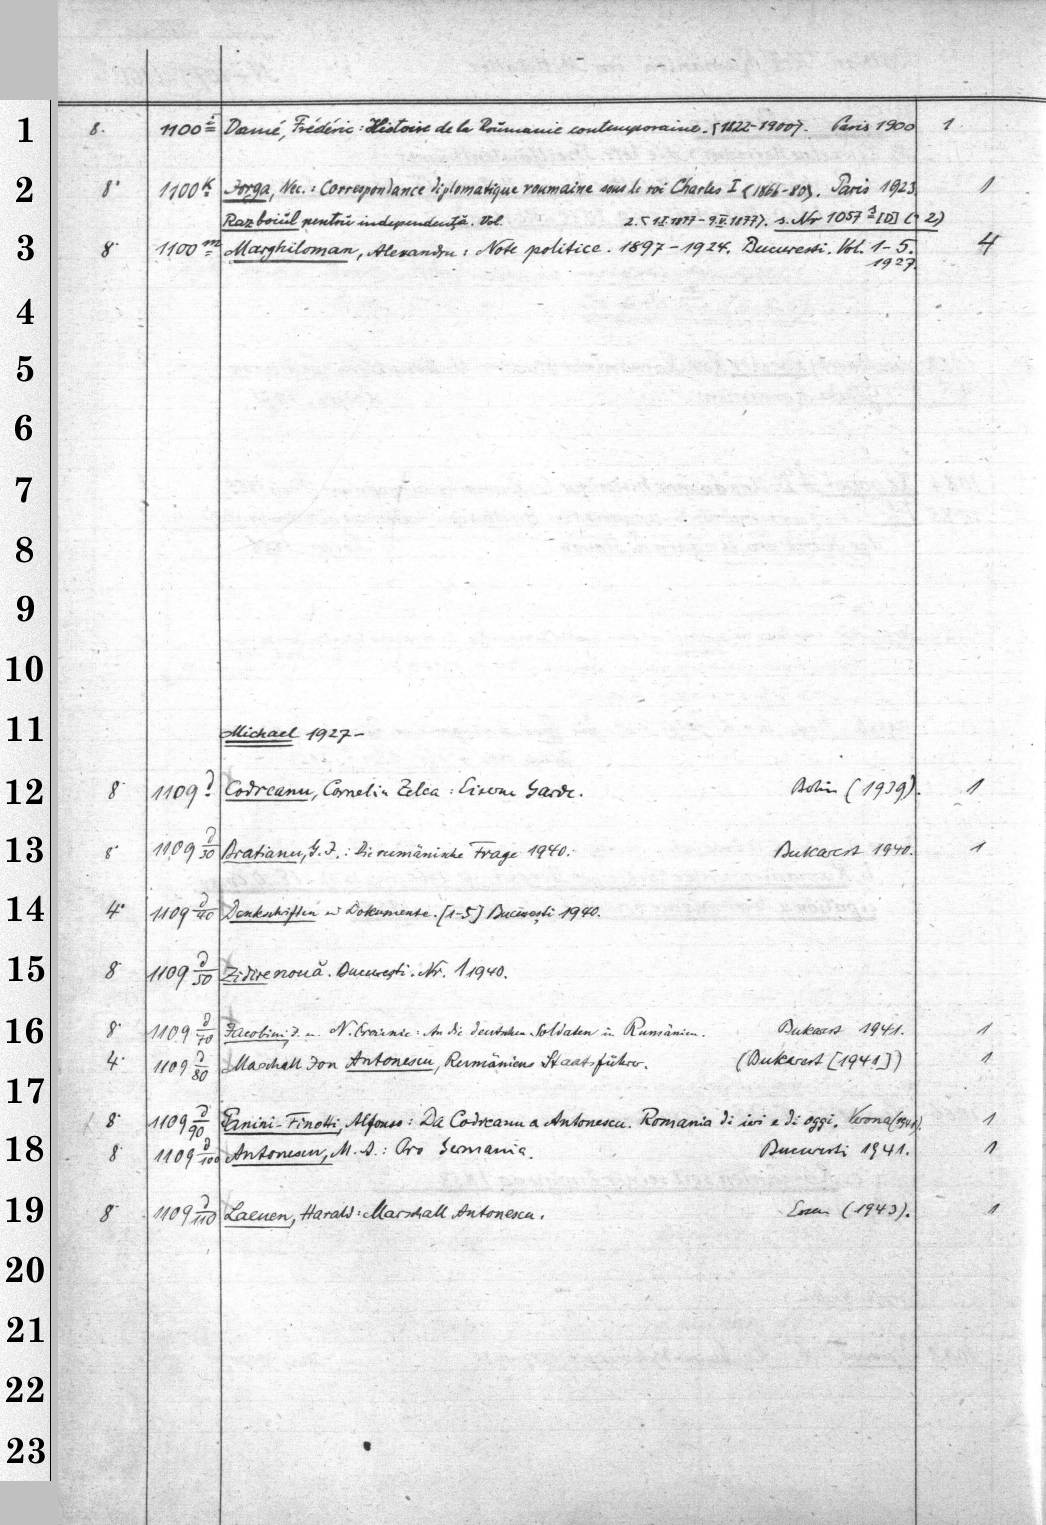 1
8° 1100 i Damé, Frédéric: Histoire de la Roumanie contemporaine. (1822-1900). Paris 1900 1
2
8° 1100 k Jorga, Nec.: Correspondance diplomatique roumaine sous le roi Charles I (1866-80). Paris 1923 1
Razboiul pentru independență. Vol. 2. (1.I.1877-9.V.1877). s. Nr 1057 [D] (: 2)
3
8° 1100 m Marghiloman, Alexandru: Note politice. 1897-1924. Bucuresti. Vol. 1-5. 4
1927.
4
5
6
7
8
9
10
11
Michael 1927-
12
8° 1109 d Codreanu, Cornelia Zelea: Eiserne Garde. Berlin (1939). 1
13
8° 1109 d/30 Bratianu, G. I.: Die rumänische Frage 1940. Bukarest 1940. 1
14
4° 1109 d/40 Denkschriften u Dokumente. [1-5] București 1940.
15
8° 1109 d/50 Zidire nouă. București. Nr. 1 1940.
16
8° 1109 d/70 Jacobini, J. u. N. Crainic: An die deutschen Soldaten in Rumänien. Bukarest 1941. 1
4° 1109 d/80 Marschall Jon Antonescu, Rumäniens Staatsführer. (Bukarest [1941]) 1
17
8° 1109 d/90 Panini-Finotti, Alfonso: Da Codreanu a Antonescu. Romania di ieri e di oggi. Verona (1941). 1
18
8° 1109 d/100 Antonescu, M. A.: Pro Germania. Bucuresti 1941. 1
19
8° 1109 d/110 Laeuen, Harald: Marschall Antonescu. Essen (1943). 1
20
21
22
23